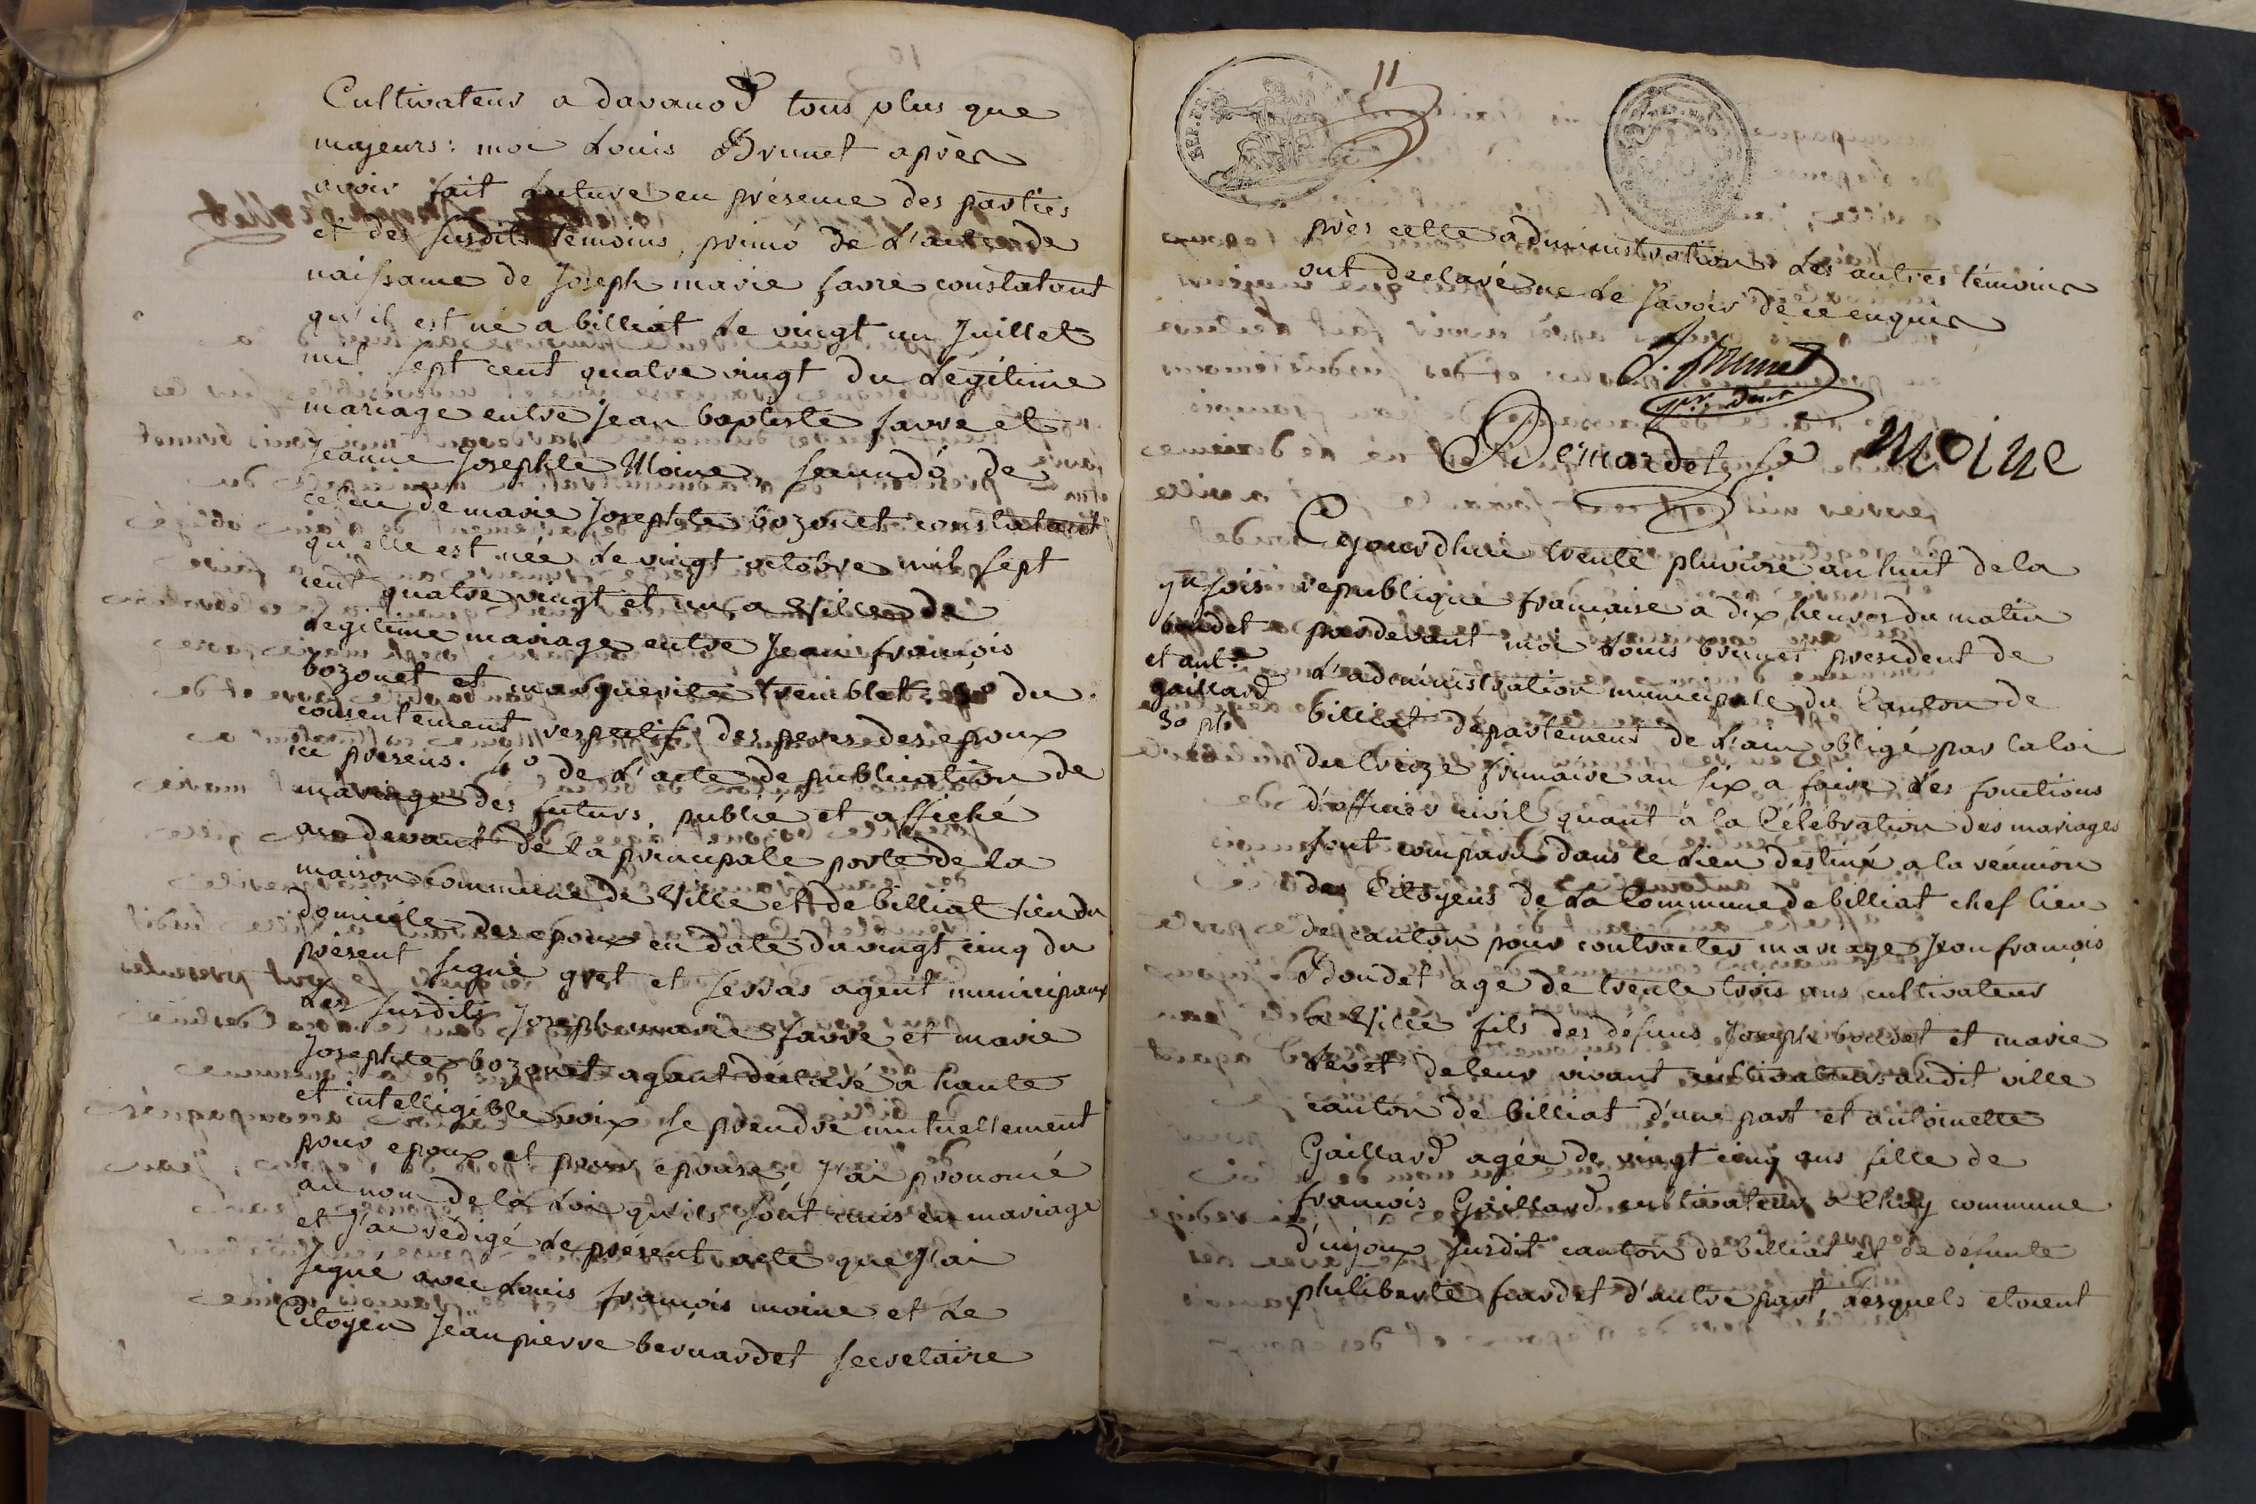 Cultivateur a davanod tous plus que
majeurs : moi Louis Brunet après
avoir fait Lecture en présence des parties
et des susdits témoins, primò de L'acte de
naissance de Joseph marie favre constatant
qu'il est né a billiat Le vingt un Juillet
mil sept cent quatre vingt du Légitime
mariage entre Jean baptiste favre et
Jeanne Josephte Moine, secundò de
celui de marie Josephte bozonet constatant
qu'elle est née Le vingt octobre mil sept
cent quatre vingt et un a Ville de
Légitime mariage entre Jean françois
bozonet et marguerite tremblet. 3° du
consentement respectif des peres des epoux
ici présens. 4° de L'acte de publication de
mariage des futurs, publié et affiché
au devant de la principale porte de la
maison commune de Ville et de billiat Lieu du
domicile des epoux en date du vingt cinq du
présent signé gret et servas agent municipaux
Les susdits Joseph marie favre et marie
Josephte bozonet ayant déclaré a haute
et intelligible voix se prendre mutuellement
pour epoux et pour epouse, J'ai prononcé
au nom de la Loi qu'ils sont unis en mariage
et J'ai rédigé Le présent acte que J'ai
signé avec Louis françois moine et Le
Citoyen Jean pierre bernardet secretaire
11
REP. FRA.
près cette administration. Les autres témoins
ont declaré ne Le savoir de ce enquis
L. Brunet
president
Bernardet se moine
jn fois
boudet
et ant.e
gaillard
30 pl.
Cejourd'hui trente pluviose an huit de la
republique française a dix heures du matin
pardevant moi Louis brunet president de
L'administration municipale du Canton de
billiat département de L'ain obligé par la loi
du treize frimaire an six a faire les fonctions
d'officier civil quant à la Célébration des mariages
sont comparu dans le Lieu destiné a la réunion
des Citoyens de La Commune de billiat chef Lieu
de canton pour contracter mariage Jean françois
Boudet agé de trente trois ans cultivateur
a Ville fils des défuns Joseph boudet et marie
Levet de leur vivant cultivateurs audit ville
canton de billiat d'une part et antoinette
Gaillard agée de vingt cinq ans fille de
françois Gaillard cultivateur a Chay commune
d'injoux susdit canton de billiat et de défunte
philiberte fardet d'autre part, Lesquels etoient